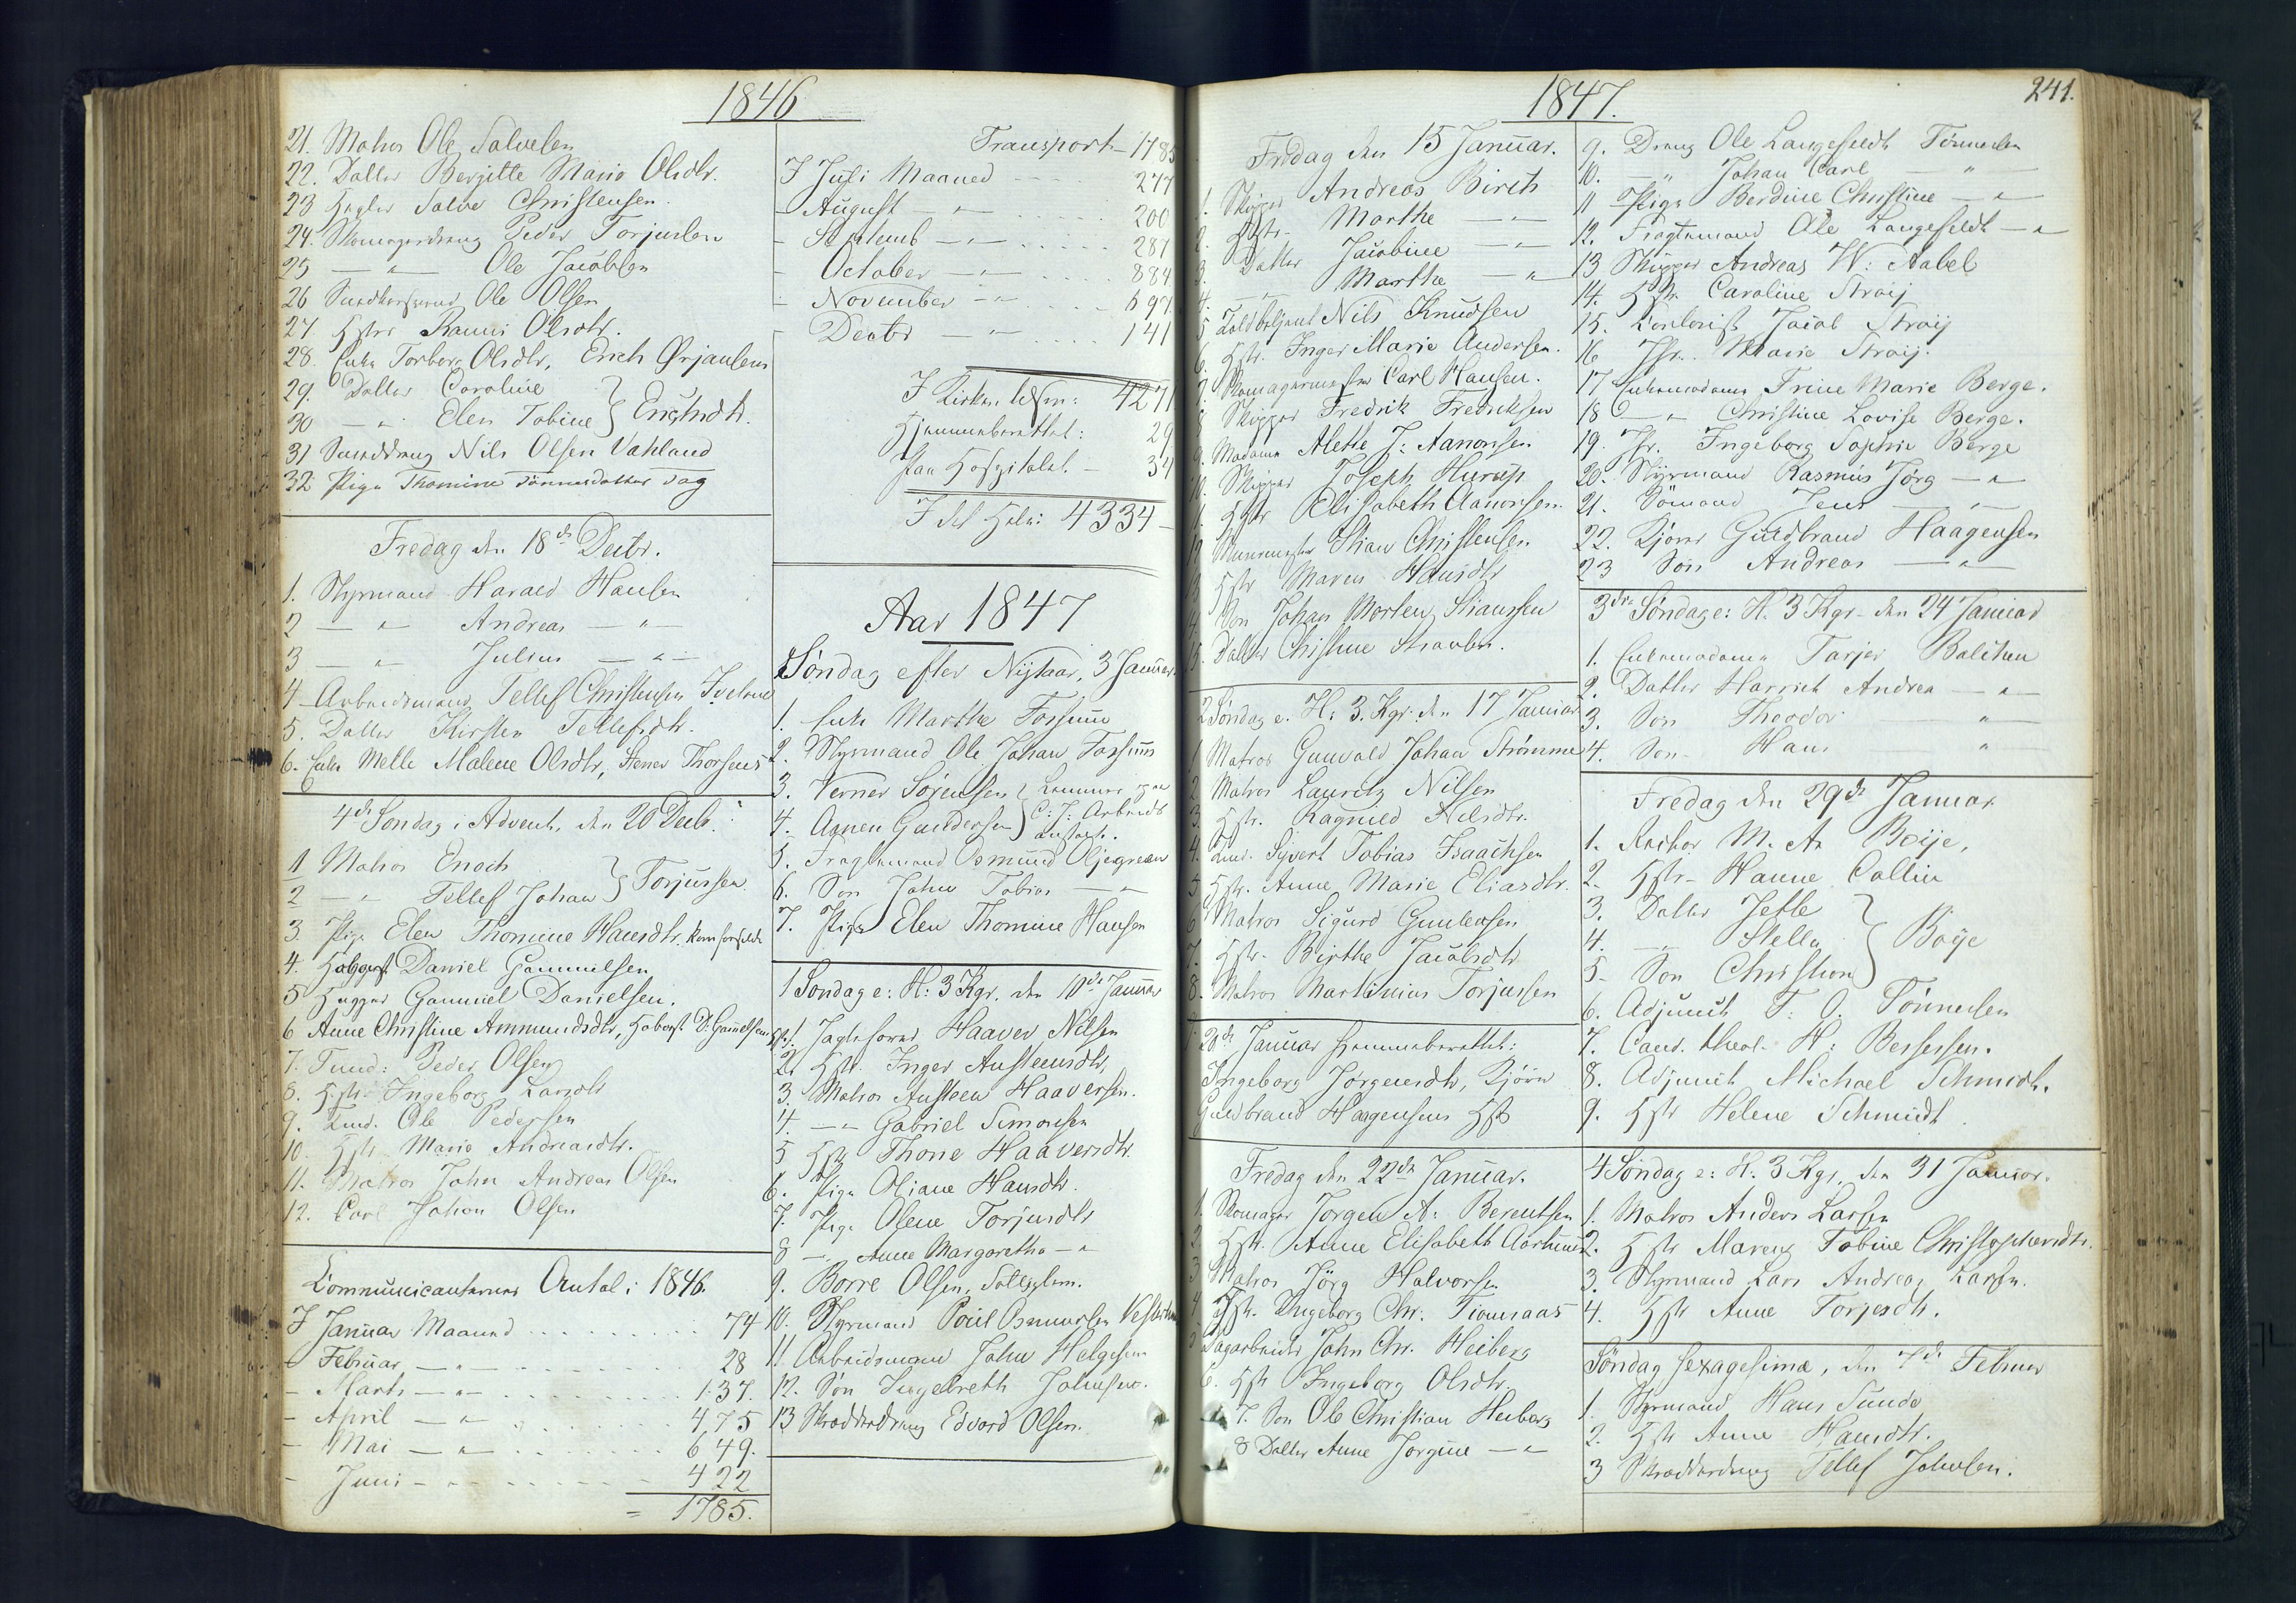 1846
21. Matros Ole Salvesen
22. Datter Bergitte Marie Olsdtr.
23 Salve Christensen.
24. Skomagerdreng Peder Torjusen
25 — " — Ole Jacobsen
26 Ole Olsen
27. Hstr Ranni Olsdtr.
28. Enke Torborg Olsdtr, Erich Ørjansens
29. Datter Caroline
30 — " Elen Tobine } Erichsdtr.
31 Smeddreng Nils Olsen Vahland
32 Pige Thomine Tönnesdatter Dag
Fredag den 18de Decbr.
1. Styrmand Harald Hansen
2 — " — Andreas — " —
3 — " — Julius — " —
4 Arbeidsmand Tellef Christensen
5. Datter Kirsten Tellefsdtr.
6. Enke Malene Olsdtr, Stener Thorsens
4de Søndag i Advent, den 20 Decb.
1 Matros Enoch
2 — " — Tellef Johan } Torjussen
3. Pige Elen Thomine Hansdtr.
4. Daniel Gammelsen
5 Gammel Danielsen.
6 Anne Christine Ammundsdtr, D: Gamelsens Hstr.
7. Tund: Peder Olsen
8. Hstr Ingeborg Larsdtr
9. Tmd. Ole Pedersen
10. Hstr Marie Andreasdtr.
11. Matros John Andreas Olsen
12. Carl Johan Olsen
Communicanternes Antal i 1846.
I Januar Maaned . . . . 74
- Februar — " — . . . . 28
- Marts — " — . . . . 137.
- April — " — . . . . 475
- Mai — " — . . . . 649.
- Juni — " — . . . . 422
= 1785.
Transport - 1785
I Juli Maaned — 277
- August — " — . . . 200
- Septemb — " — . . . 287
- October — " — . . . 884
- November — " — . . . 697
- Decbr — " — . . . 141
I Kirken tilsm: 4271
Hjemmeberettet: 29
Paa Hospitalet — 34
I det Hele: 4334
Aar 1847
Søndag efter Nytaar, 3 Januar.
1. Enke Marthe Fossum
2. Styrmand Ole Johan Fossum
3. Verner Sørensen
4. Agnen Gundersen
5. Fragtemand Osmund Oljegreen
6. Søn John Tobias — " —
7. Pige Elen Thomine Hansen
1 Søndag e: H: 3 Kgr. den 10de Januar
1. Haaver Nilsen
2. Hstr. Inger Austensdtr,
3. Matros Austeen Haaversen.
4. — " — Gabriel Simonsen
5 Hstr Thone Haaversdtr.
6. Pige Oliane Hansdtr.
7. Pige Olene Torjusdtr
8 — " Anne Margarethe — "
9. Borre Olsen,
10. Styrmand Poul Osmundsen
11. Arbeidsmand John Helgesen
12. Søn Ingebreth Johnsen.
13 Skrædderdreng Edvard Olsen.
1847.
241.
Fredag den 15 Januar.
1. Skipper Andreas Birch
2. Hstr. Marthe — " —
3. Datter Jacobine — " —
4. — " Marthe — " —
5 Toldbetjent Nils Knudsen
6. Hstr. Inger Marie Andersen.
7. Skomagermester Carl Hansen.
8 Skipper Fredrik Fredriksen
9. Madame Alethe J: Aanonsen
10. Skipper Joseph
11. Hstr Elisabeth Aanonsen
12 Muurmester Stian Christensen
13 Hstr Maren Hansdtr
14. Søn Johan Morten Stianssen
15. Datter Christine
2 Søndag e. H: 3. Kgr. den 17 Januar
1 Matros Gunvald Johan Strømme
2 Matros Lauritz Nilsen
3. Hstr. Ragnild Nilsdtr.
4. Tmd. Syvert Tobias Isaachsen
5 Hstr. Anne Marie Eliasdtr.
6 Matros Sigurd Gunleksen
7. Hstr. Birthe Jacobsdtr
8. Matros Martinius Torjussen
20de Januar Hjemmeberettet:
Ingeborg Jørgensdtr, Kjörer
Guldbrand Haagensens Hstr
Fredag den 22de Januar.
1. Skomager Jørgen A: Berentsen
2 Hstr. Anne Elisabeth
3 Matros Jörg Halvorsen
4 Hstr. Ingeborg Chr:
5 Dagarbeider John Chr. Heiberg
6. Hstr Ingeborg Olsdtr.
7. Søn Ole Christian Heiberg
8 Datter Anne Jorgine — " —
9. Dreng Ole Langefeldt Tönnesen
10. — " Johan Carl — " —
11 Pige Berdine Christine — " —
12. Fragtemand Ole Langefeldt — " —
13 Skipper Andreas W: Aabel
14. Hstr. Caroline Straij
15. Contorist Jacob Straij
16 Jfr. Marie Straij.
17 Enkemadame Trine Marie Berge.
18 — " — Christine Lovise Berge.
19. Jfr. Ingeborg Sophie Berge
20. Styrmand Rasmus Jörg — " —
21. Sömand Jens — " —
22. Kjörer Guldbrand Haagensen
23 Søn Andreas — " —
3die Søndag e: H. 3 Kgr. den 24 Januar
1. Enkemadame Tarjer Balchen
2. Datter Harriet Andrea — " —
3. Søn Theodor — " —
4. Søn Hans — " —
Fredag den 29de Januar
1. Rector M. A. Boije,
2. Hstr. Hanne Collin
3. Datter Jette
4. — " — Stella
5. Søn Christian } Boije
6. Adjunct T. O. Tönnesen
7. Cand. theol. H: Bessesen.
8. Adjunct Michael Schmidt.
9. Hstr Helene Schmidt
4 Søndag e: H: 3 Kgr, den 31 Januar.
1. Matros Anders Larsen
2. Hstr Maren Tobine Christophersdtr.
3. Styrmand Lars Andreas Larsen.
4. Hstr Anne Torjesdtr.
Søndag Sexagesimæ, den 7de Februar
1. Styrmand Hans Sunde
2. Hstr Anne Hansdtr.
3 Skrædderdreng Tellef Johnsen.